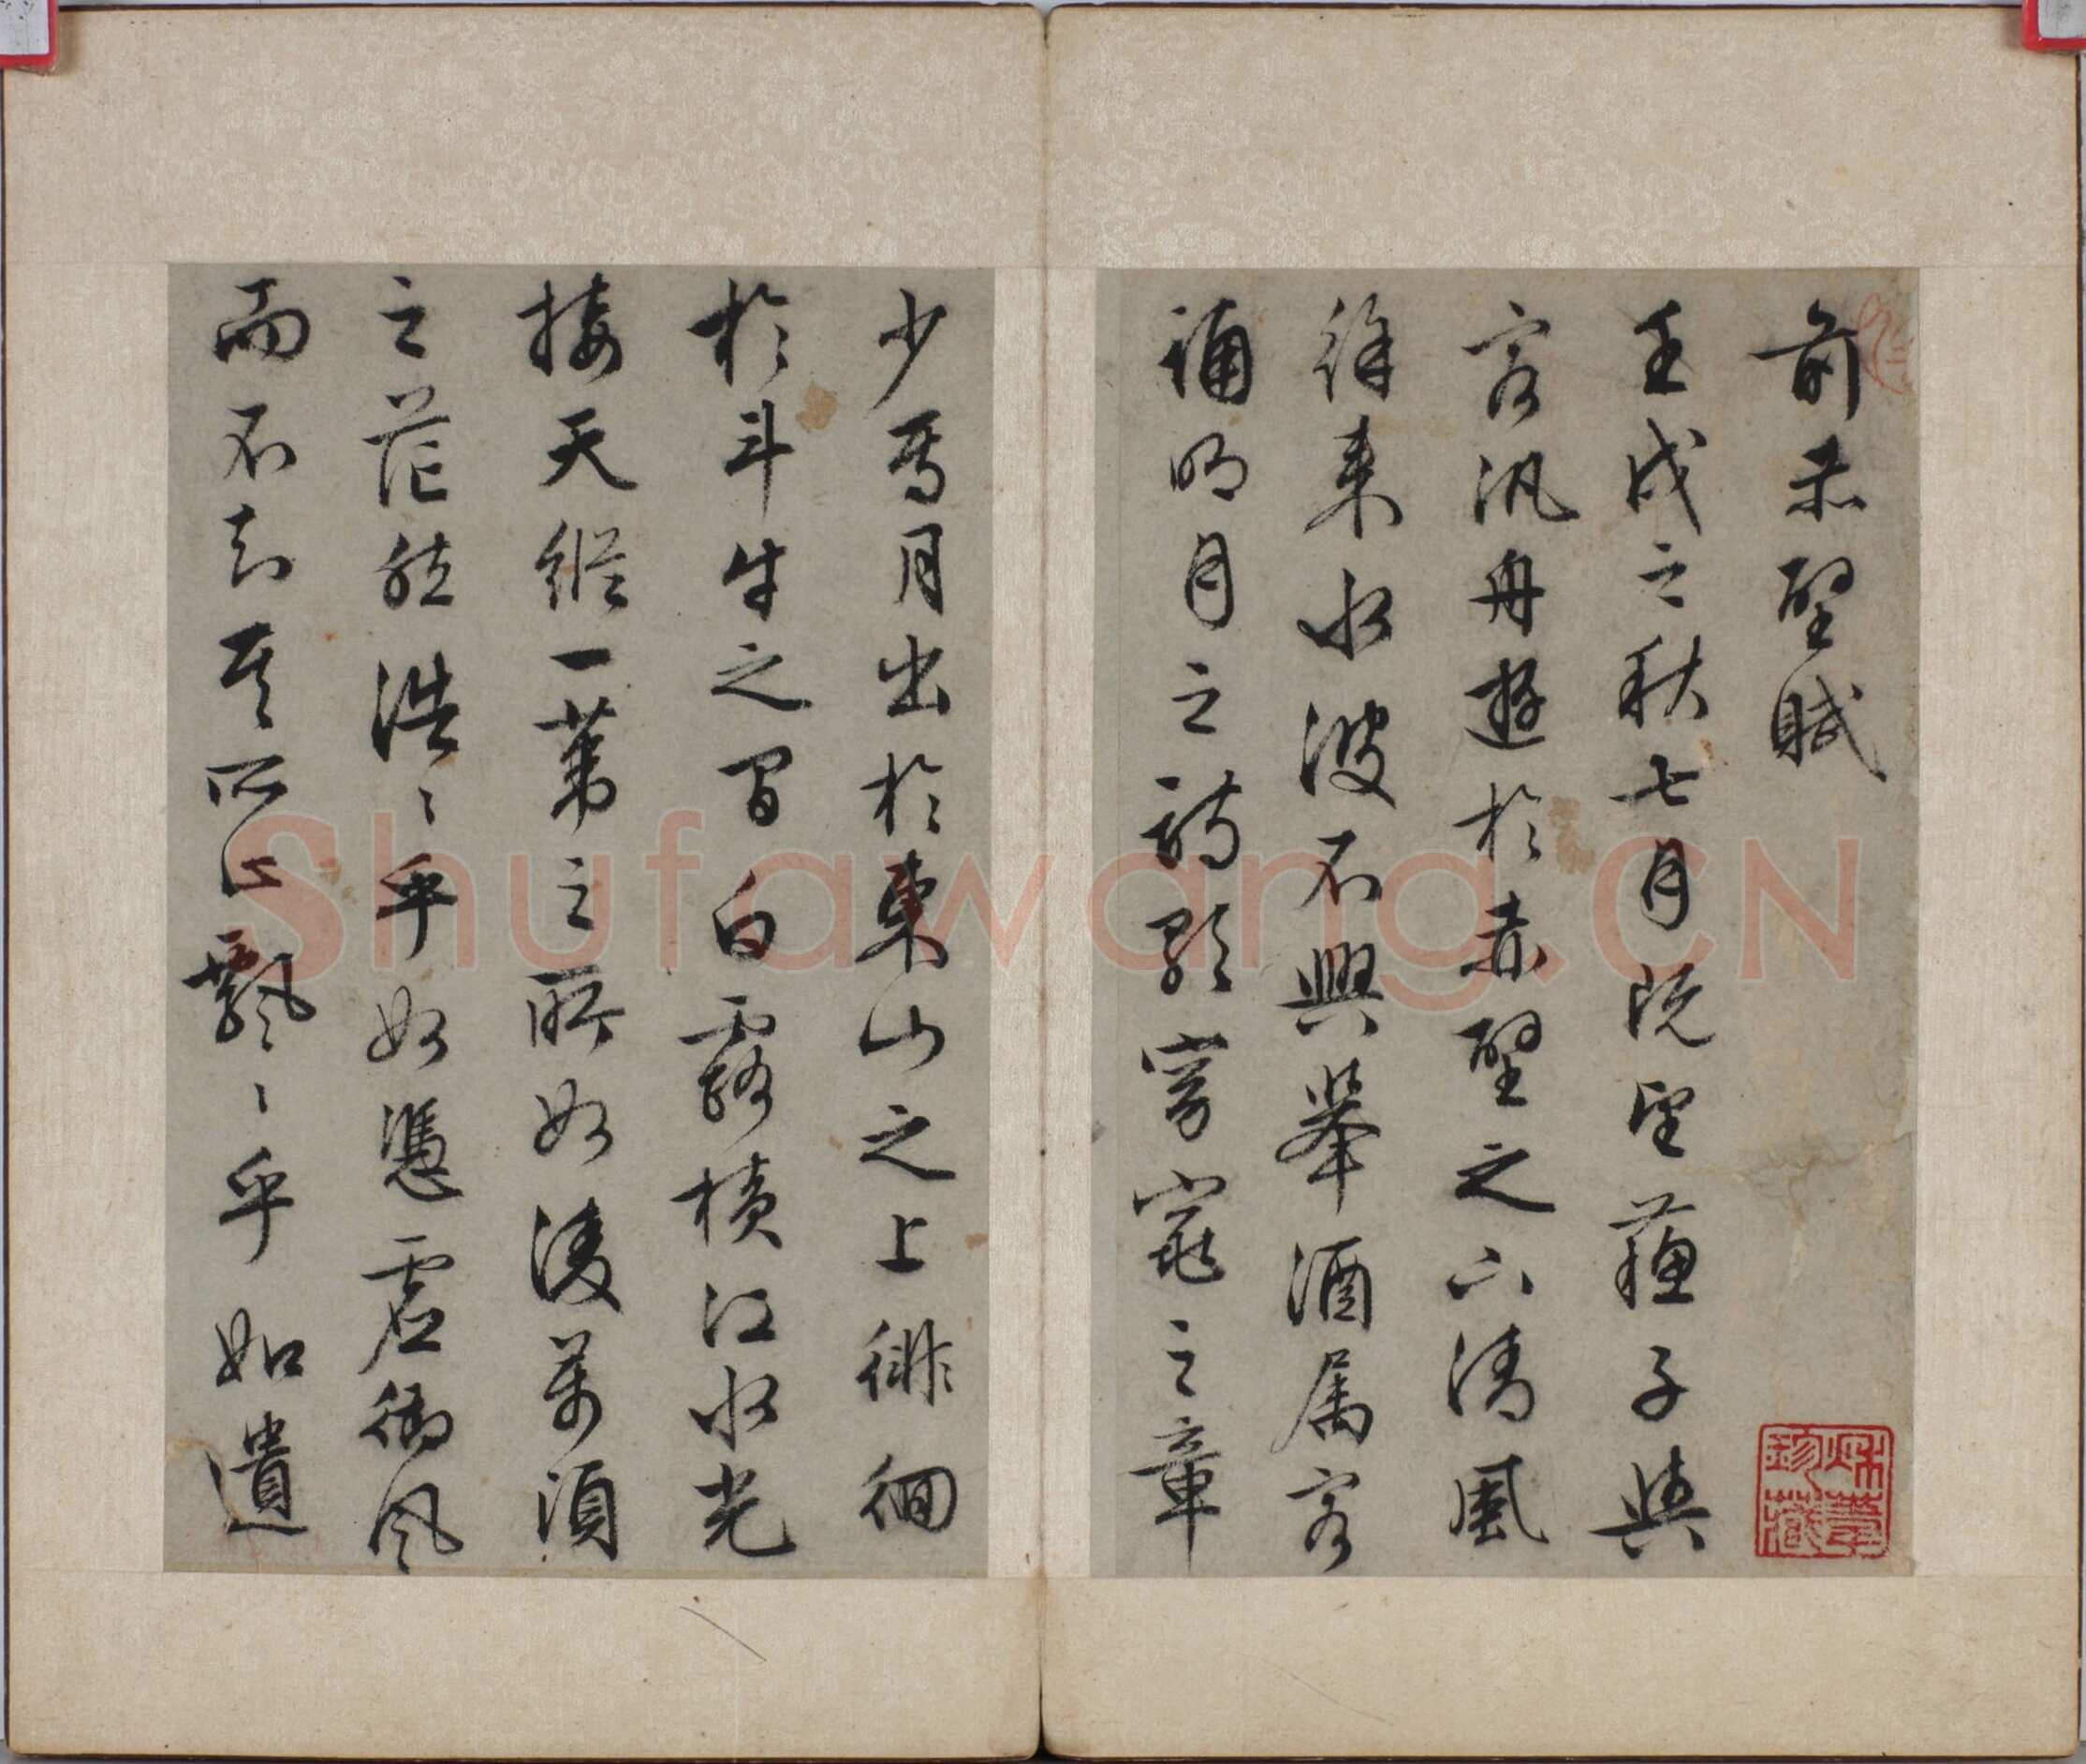 前赤壁賦
壬戌之秋七月既望蘇子與
客汎舟遊於赤壁之下清風
徐来水波不興舉酒属客
誦明月之詩歌窈窕之章
少焉月出於東山之上徘徊
於斗牛之間白露橫江水光
接天縱一葦之所如淩萬頃
之茫然浩〻乎如憑虛御風
而不知其所止飄〻乎如遺
珍藏
Shufawang.CN